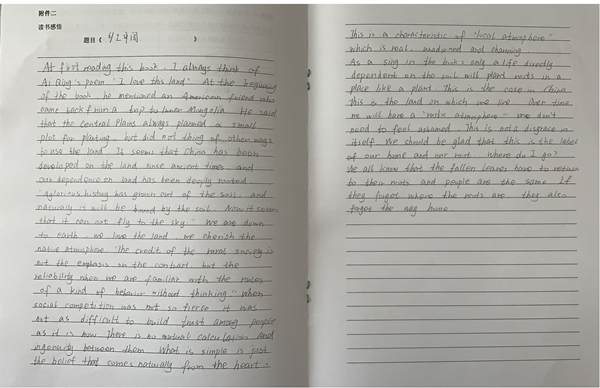 附件二
读书感悟
题目《乡土中国》
At first reading this book, I always think of
Ai Qing's poem "I love this land" At the beginning
of the book, he mentioned an American friend who
came back from a trip to Inner Mongolia. He said
that the central Plains always planned a small
plot for planting, but did not thing of other ways
to use the land. It seems that China has been
developed on the land since ancient times, and
our dependence on land has been deeply rooted.
"A glorious history has grown out of the soil, and
naturally it will be bound by the soil. Now it seems
that it can not fly to the sky." We are down
to earth, we love the land, we cherish the
native atmosphere "The credit of the rural society is
not the emphasis on the contract, but the
reliability when we are familiar with the rules
of a kind of behavior without thinking." When
social competition was not so fierce it was
not as difficult to build trust among people
as it is now There is no mutual calculation and
ingenuity between them What is simple is just
the belief that comes naturally from the heart.
This is a characteristic of "local atmosphere"
which is real, and charming
As a sing in the book, only a life directly
dependent on the soil will plant roots in a
place like a plant. This is the case in China.
This is the land on which we live. Over time
we will have a "rustic atmosphere" We don't
need to feel ashamed. This is not a disgrace in
itself We should be glad that this is the label
of our home and our root. Where do I go?
We all know that the fallen leaves have to return
to their roots and people are the same If
they forget where the roots are they also
forget the way home